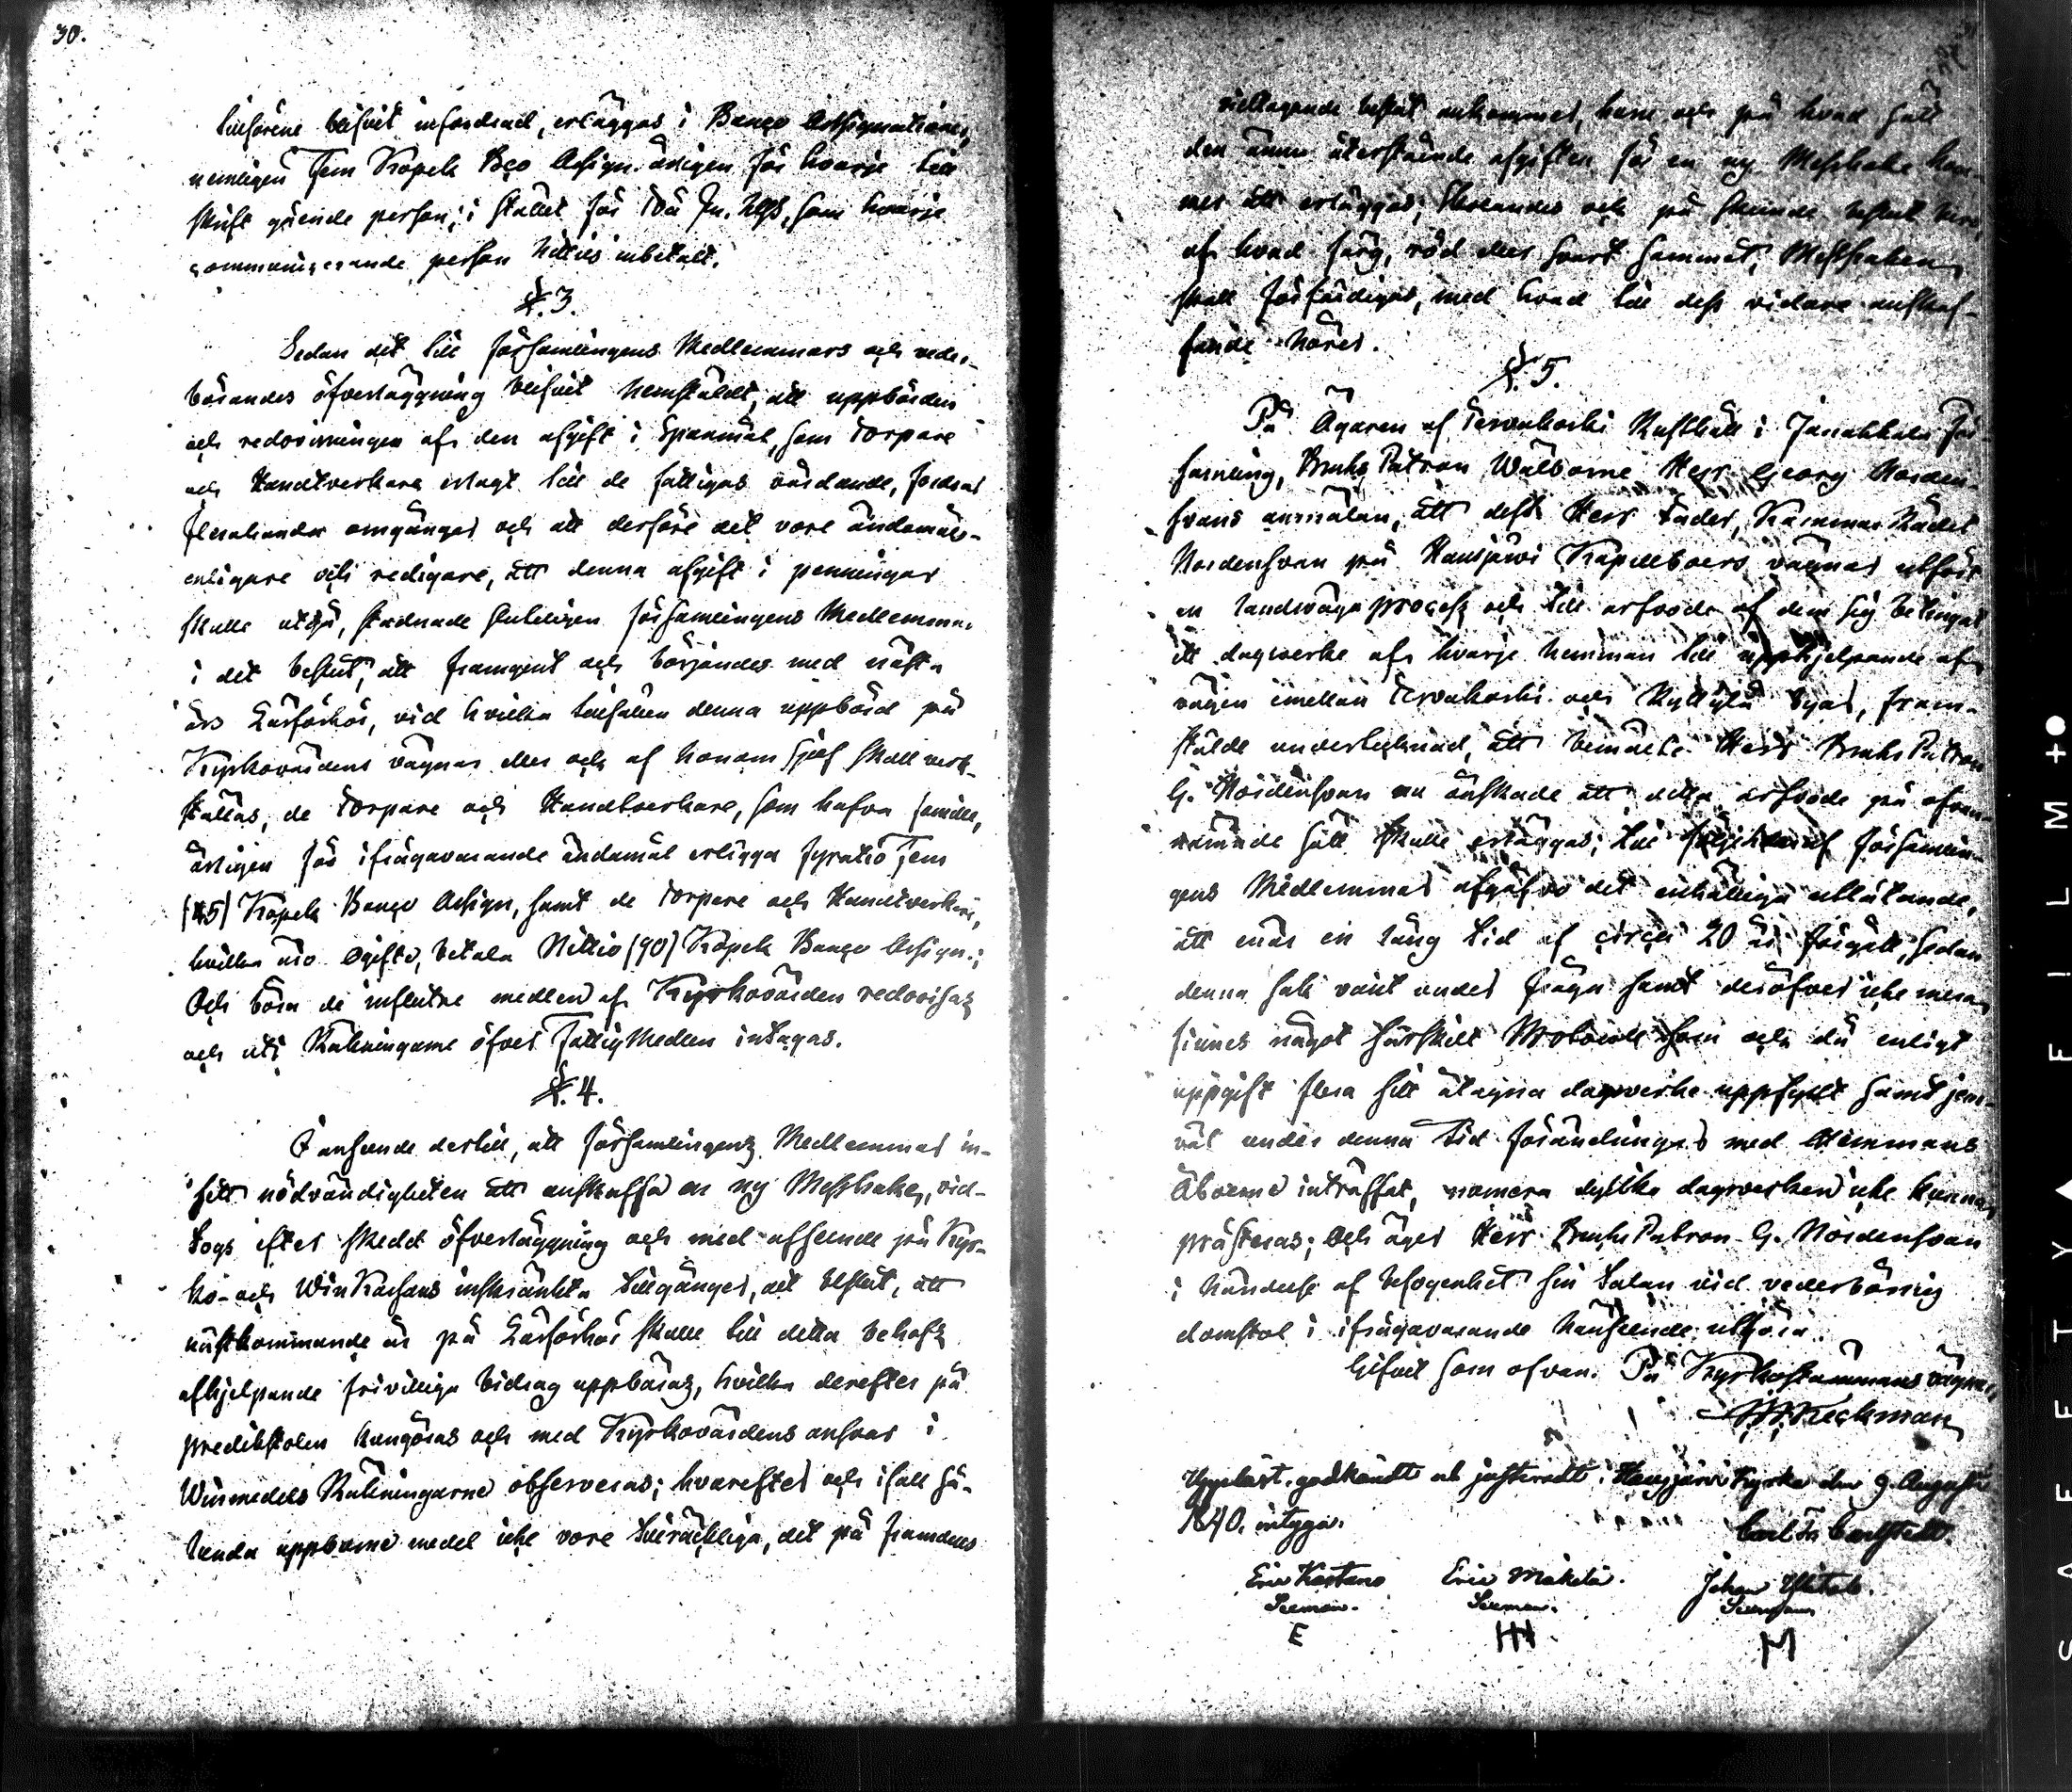 30.
tillförene blifvit infordrad, erläggas i Banco Assignationer,
nemligen Fem Kopek Bco Assign. årligen för hvarje till
skrift gående person; i stället för Två Rn. Uhß, som hvarje
communicerande person hittils inbetalt.
§. 3.
Sedan det till Församlingens Medlemmars och veder-
börandes öfverläggning blifvit hemstäldt, att uppbörden
och redovisningen af den afgift i Spanmål, som Torpare
och Handtverkare erlagt till de fattigas vårdande, fordrar
flerahanda omgånger och att derföre det vore ändamåls-
enligare och redigare, att denna afgift i penningar
skulle utgå, stadnade slutligen församlingens Medlemmar
i det beslut, att framgent och börjandes med nästa
års Läsförhör, vid hvilka tillfällen denna uppbörd på
Kyrkovärdens vägnar eller och af honom sjelf skall verk-
ställas, de Torpare och Handtverkare, som hafva familie,
årligen för ifrågavarande ändamål erlägga fyratio Fem
(45) Kopek Banco Assign, samt de Torpare och Handtverkare,
hvilka äro Ogifte, betala Nittio (90) Kopek Banco Assign.;
Och böra de influtne medlen af Kyrkovärden redovisas
och uti Räkningarne öfver FattigMedlen intagas.
§. 4.
I anseende dertill, att församlingens Medlemmar in-
sett nödvändigheten att anskaffa en ny Messhake, vid-
togs efter skedd öfverläggning och med afseende på Kyr-
ko- och WinKassans inskränkta tillgånger, det beslut, att
nästkommande år på Läsförhör skulle till detta behofs
afhjelpande frivilliga bidrag uppbäras, hvilka derefter på
predikstolen kungöras och med Kyrkovärdens ansvar i
Winmedels Räkningarne observeras; hvarefter och ifall så-
lunda uppburne medel icke vore tillräckliga, det på framdeles
vidtagande beslut ankommer, huru och på hvad sätt
den ännu återstående afgiften för en ny Messhake kom-
mer att erläggas; Skolandes och på skeende beslut bero,
af hvad färg, röd eller svart sammet, Messhaken
skall förfärdigas, med hvad till dess vidare anskaf-
fande hörer.
§. 5.
På Ägaren af Tervakoski Rusthåll i Janakkala För-
samling, Bruks Patron Wälborne Herr Georg Norden-
svans anmälan, att dess Herr Fader, Kammar Rådet
Nordensvan på Hausjärvi Kapellboers vägnar utfört
en landsvägs process och till arfvode af dem sig betingat
ett dagsverke af hvarje hemman till upphjelpande af
vägen emellan Tervakoski och Ryttylä byar, fram-
stälde undertecknad, att bemälte Herr Bruks Patron
G. Nordensvan nu önskade att detta arfvode på ofvan-
nämnde sätt skulle erläggas; till följe hvaraf församlin-
gens Medlemmar afgåfvo det enhälliga utlåtande,
att enär en lång tid af circa 20 år förgått, sedan
denna sak varit under fråga samt deröfver icke mera
finnes något särskilt Protocoll som och då enligt
uppgift flera sitt åtagna dagsverke uppfyllt samt jem-
väl under denna tid förändringar med Hemmans
Åboerne inträffat, numera dylika dagsverken icke kunna
præsteras; Och äger Herr Bruks Patron G. Nordensvan
i händelse af befogenhet sin talan vid vederbörlig
domstol i ifrågavarande hänseende utföra.
Gifvit som ofvan. På Kyrkostämmans vägnar,
Uppläst, godkändt ock justeradt i Hausjärvi Kyrka den 9 Augusti
1840, intyga.
Carl Fr Carlstedt.
Eric Mäkelä.
Johan
Sexman.
Sexman.
Sexman
E
M
SAFETY FILM